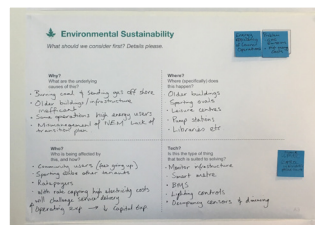 Environmental Sustainability
What should we consider first? Details please.
Why?
What are the underlying
causes of this?
• Burning coal & sending gas off shore
• Older buildings / infrastructure
inefficient
• Some operations high energy users
• Mismanagement of NEM. Lack of
transition plan
Where?
Where (specifically) does
this happen?
Older buildings
Sporting ovals
• Leisure centres
• Pump stations
• Libraries etc.
Who?
Who is being affected by
this, and how?
• Community users (fees going up)
• Sporting clubs other tenants
• Ratepayers
• With rate capping high electricity costs
will challenge service delivery
↑ Operating exp → ↓ Capital exp
Tech?
Is this the type of thing
that tech is suited to solving?
• Monitor infrastructure
• Smart metre
• BMS
• Lighting controls
• Occupancy censors & dimming